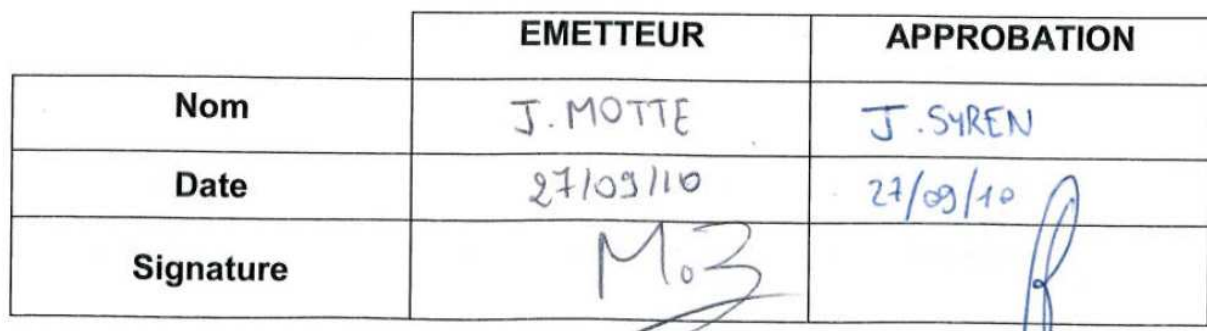 EMETTEUR APPROBATION
Nom J. MOTTE J. SYREN
Date 27/09/10 27/09/10
Signature